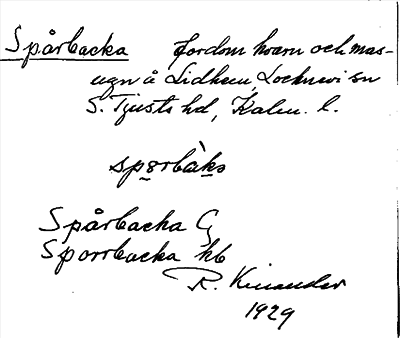 Spårbacka fordom kvarn och mas-
ugn å Lidhem, Locknevi sn
S. Tjusts hd, Kalm. l.
spårbàka
Spårbacka G
Sporrbacka hb
R. Kinander
1929